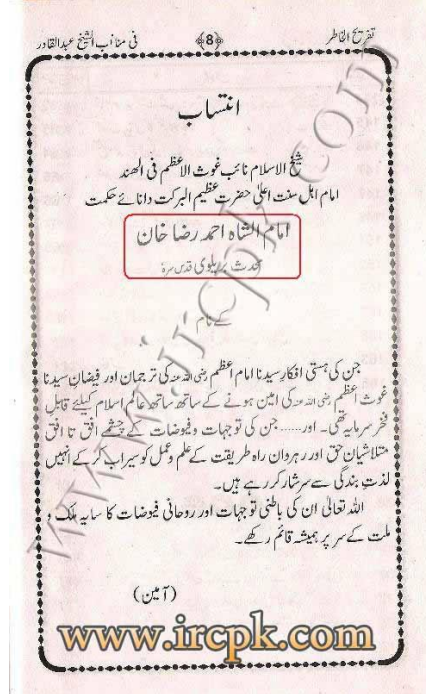 تفریح الخاطر
﴿8﴾
فی مناقب الشیخ عبدالقادر
انتساب
شیخ الاسلام نائب غوث الاعظم فی الھند
امام اہل سنت اعلیٰ حضرت عظیم البرکت دانائے حکمت
امام الشاہ احمد رضا خان
محدث بریلوی قدس سرہٗ
کے نام
جن کی ہستی افکارِ سیدنا امام اعظم رضی اللہ عنہ کی ترجمان اور فیضانِ سیدنا
غوث اعظم رضی اللہ عنہ کی امین ہونے کے ساتھ ساتھ عالم اسلام کیلئے قابلِ
فخر سرمایہ تھی۔ اور..... جن کی توجہات و فیوضات کے چشمے افق تا افق
متلاشیان حق اور رہروان راہ طریقت کے علم و عمل کو سیراب کر کے انہیں
لذتِ بندگی سے سرشار کر رہے ہیں۔
اللہ تعالیٰ ان کی باطنی توجہات اور روحانی فیوضات کا سایہ ملک و
ملت کے سر پر ہمیشہ قائم رکھے۔
(آمین)
www.ircpk.com
www.ircpk.com